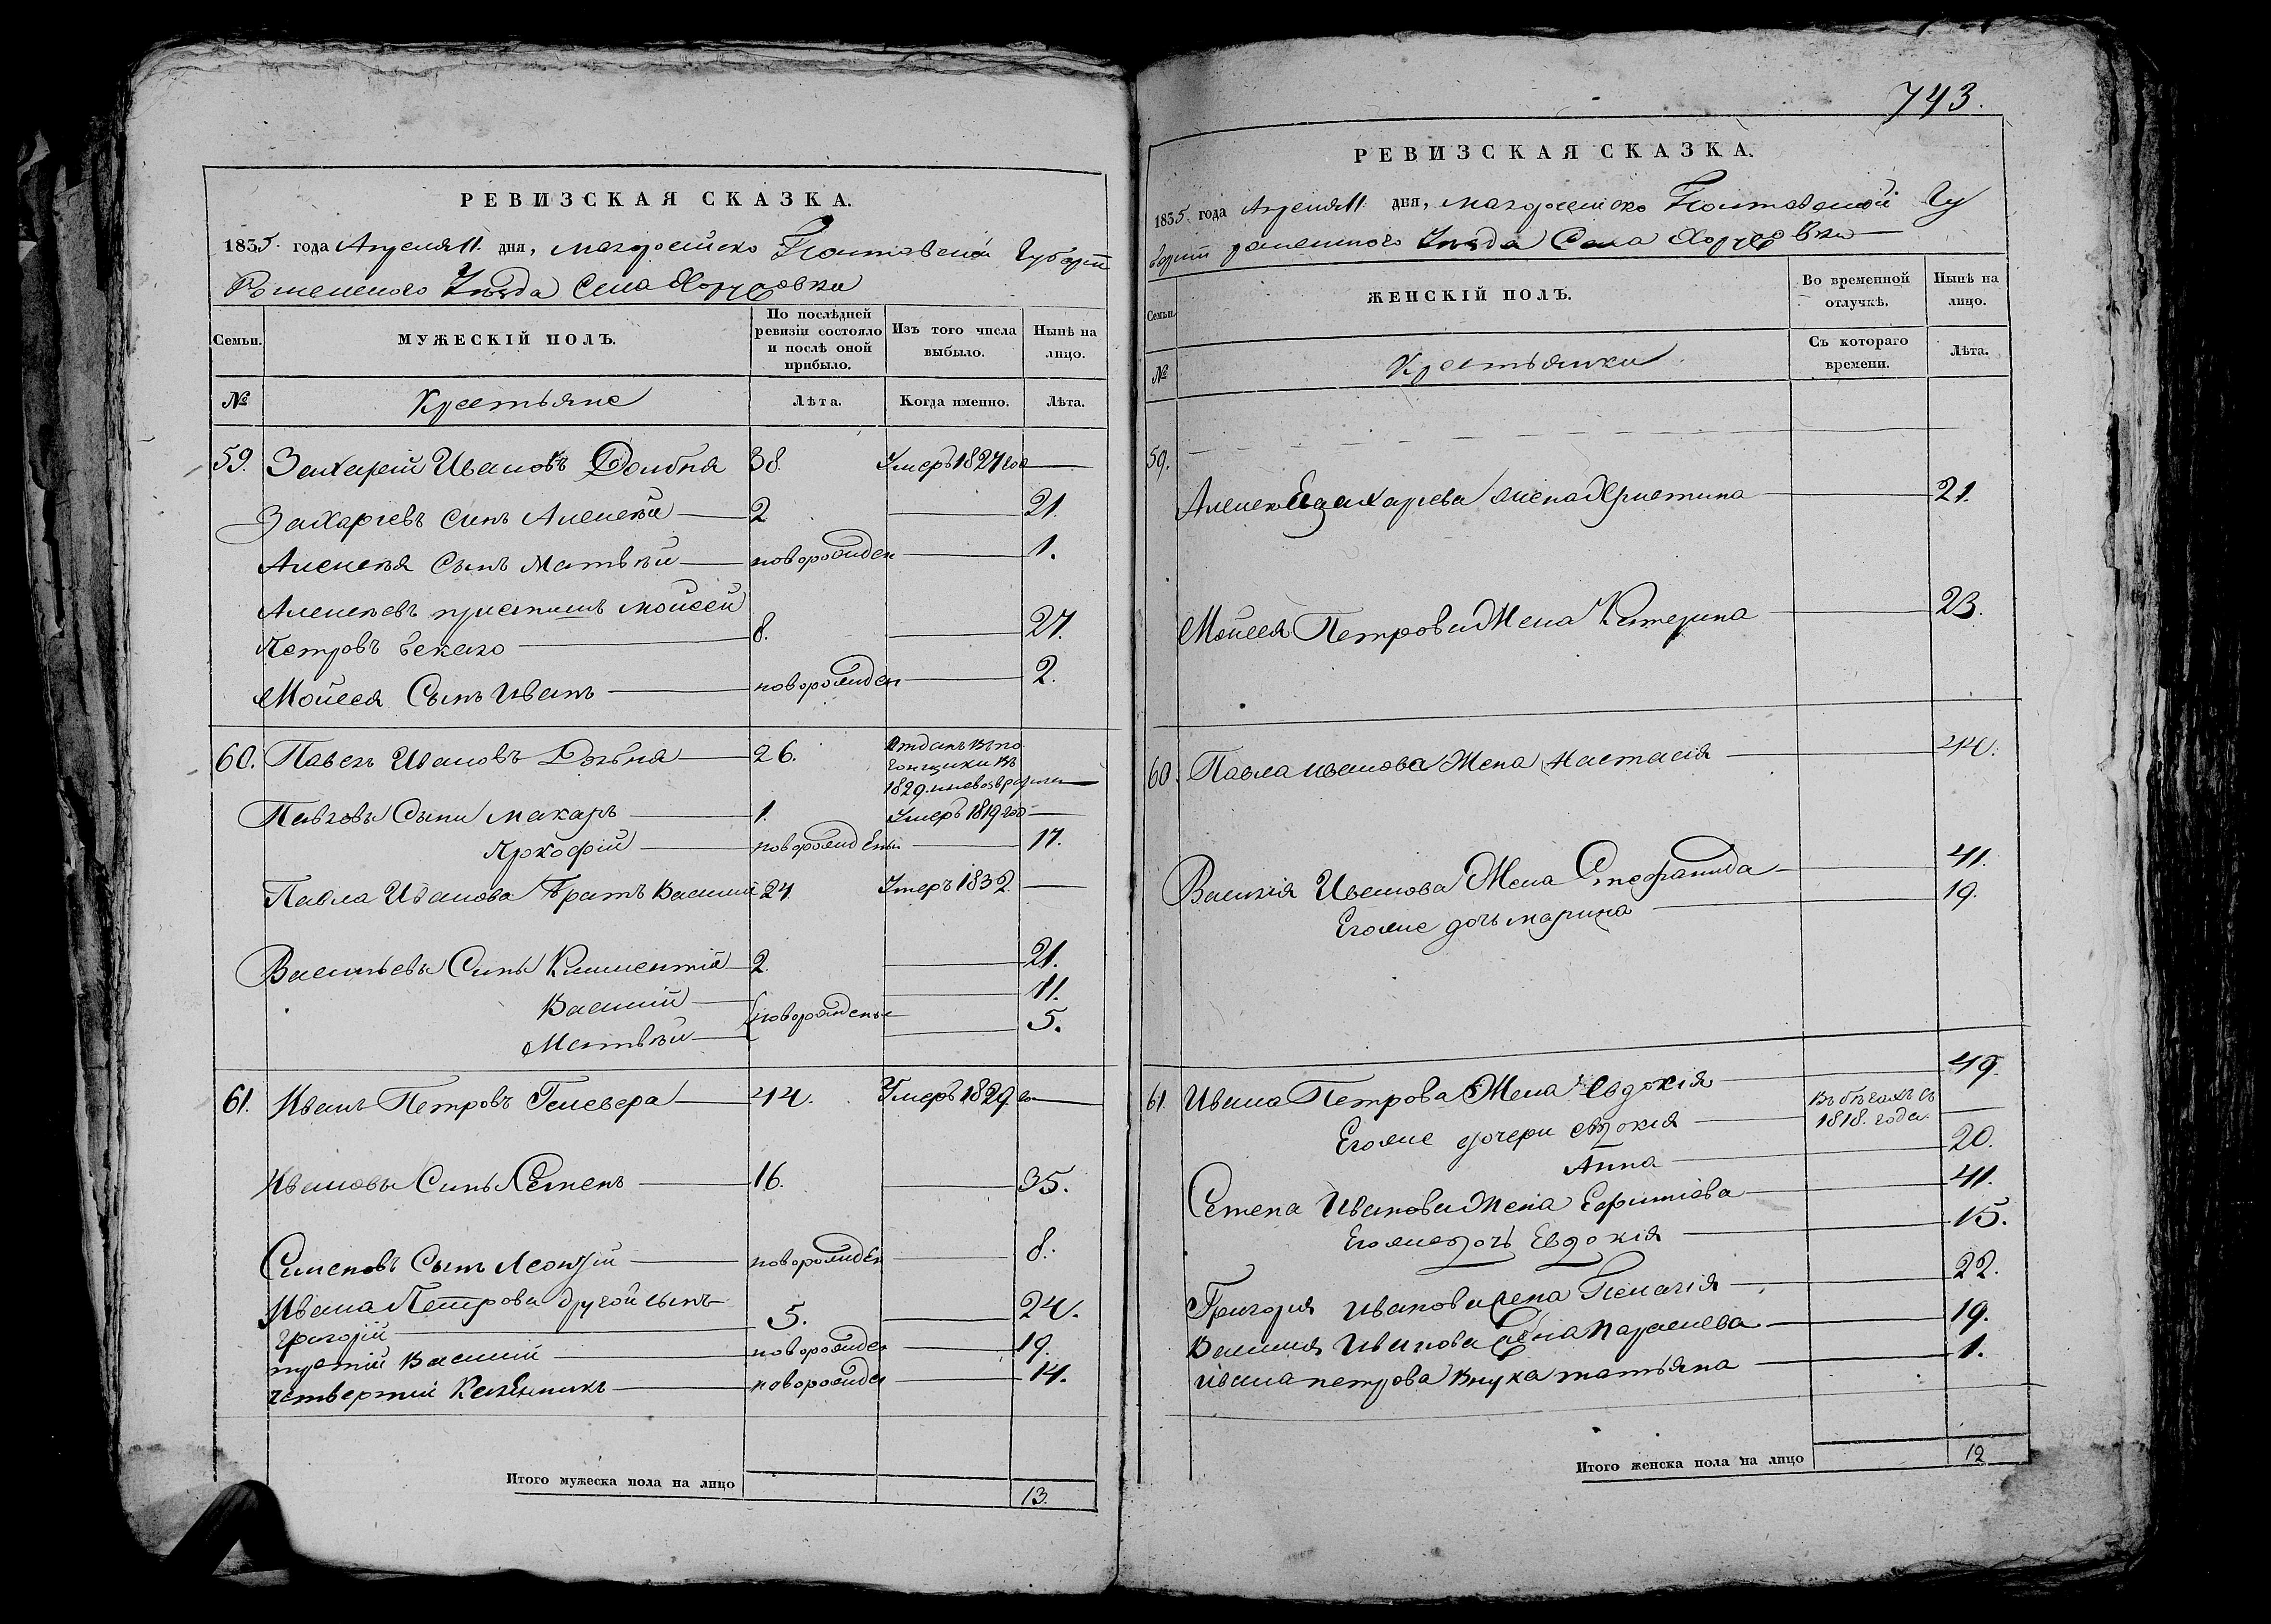 РЕВИЗСКАЯ СКАЗКА.
1835. года Апреля 11. дня, Малоросійско Полтавской Губерніи
Роменского Уезда Села
Семьи.
МУЖЕСКІЙ ПОЛЪ.
По послѣдней ревизіи состояло и послѣ оной прибыло.
Изъ того числа выбыло.
Нынѣ на лицо.
№
Крестьяне
Лѣта.
Когда именно.
Лѣта.
59. Захарій Ивановъ Долбня 38. Умеръ 1827 год
Захаріевъ Сынъ Алексѣй 2 21.
Алексѣя Сынъ Матвѣй новорожден 1.
Алексѣевъ Моисей
Петровъ 8. 27.
Мойсея Сынъ Иванъ новорожден 2.
60. Павелъ Ивановъ Долбня 26. Отданъ въ по
гонщики въ
1829.
Павловы Сыны Макаръ 1. Умеръ 1819 год
Прокофій новорожденый 17.
Павла Иванова Братъ Василій 24 Умеръ 1832.
Васильевы Сыны Климентій 2. 21.
Василій 11.
новорожденые
Матвѣй 5.
61. Иванъ Петровъ Гелевера 44. Умеръ 1829. го
Ивановы Сынъ Семенъ 16. 35.
Сименовъ Сынъ Леонтій новорожден 8.
Ивана Петрова другой сынъ
Григорій 5. 24.
третій Василій новорожден 19.
четвертій новорожден 14.
Итого мужеска пола на лицо 13.
743.
РЕВИЗСКАЯ СКАЗКА.
1835. года Апреля 11. дня, Малоросійско Полтавской Гу
берніи роменского Уезда Села
Семьи.
ЖЕНСКІЙ ПОЛЪ.
Во временной отлучкѣ.
Нынѣ на лицо.
№
Крестьянки
Съ котораго времени.
Лѣта.
59.
Алексея Захарева жена Христина 21.
Мойсея Петрова Жена Катерина 23.
60. Павла иванова Жена Настасія 44.
Василія Иванова Жена Стефанида 41.
Егоже дочь марина 19.
61. Ивана Петрова Жена Євдокія 49.
Егоже дочери євдокія Въ бѣгахъ съ
1818. года
Анна 20.
Семена Иванова Жена Ефиміева 41.
Егоже дочь Евдокія 15.
Григорія иванова жена Пелагія 22.
Василия Иванова жена Параскева 19.
ивана петрова внука татьяна 1.
Итого женска пола на лицо 12